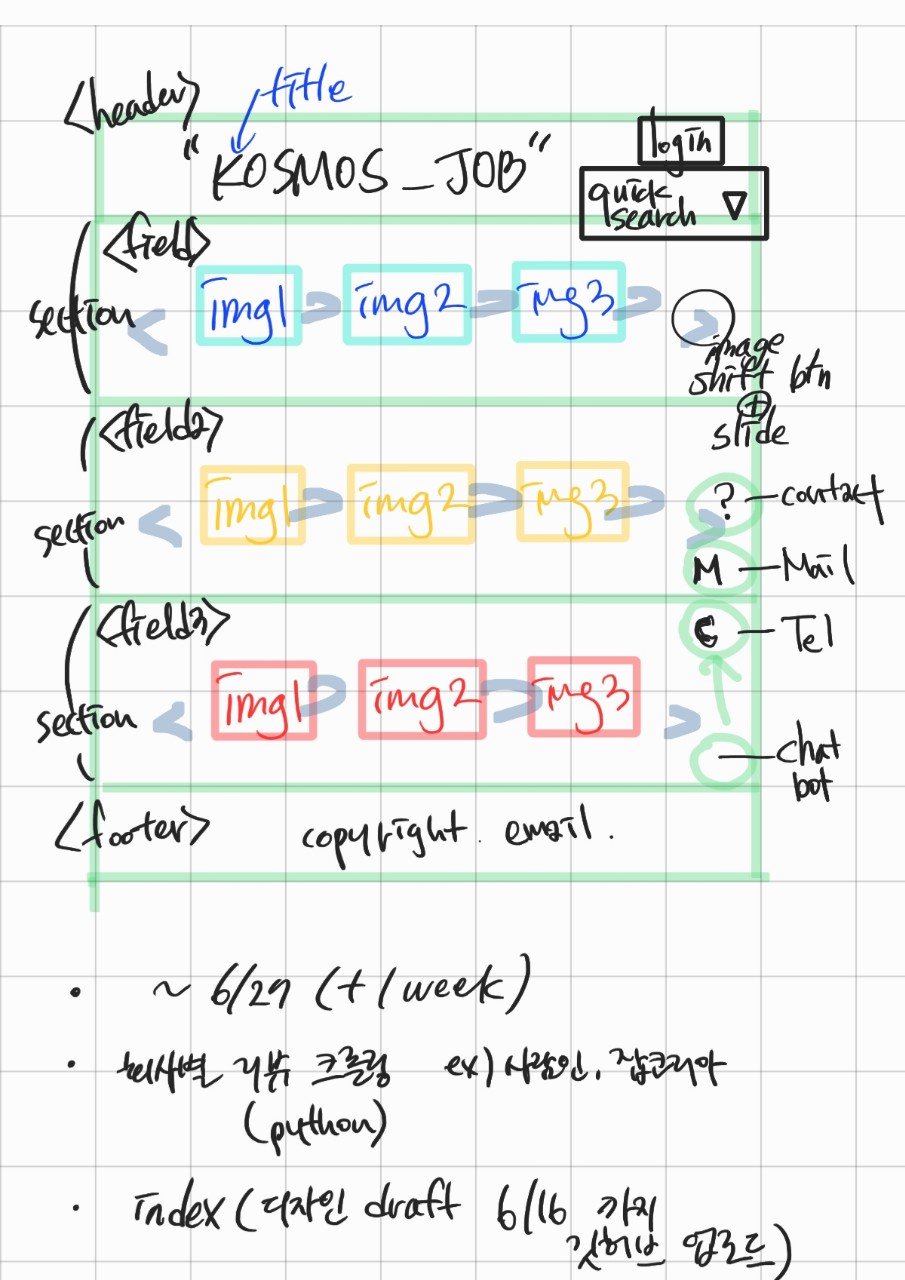 <header>
title
"KOSMOS_JOB"
login
quick
search
<field>
section
img1
img2
img3
image
shift btn
+
slide
<field2>
section
img1
img2
img3
? — contact
M — Mail
C — Tel
<field3>
section
img1
img2
img3
chat
bot
<footer>
copyright. email.
• ~ 6/29 (+1week)
• 회사별 리뷰 크롤링 ex) 사람인, 잡코리아
(python)
• index (디자인 draft 6/16 까지
깃허브 업로드)